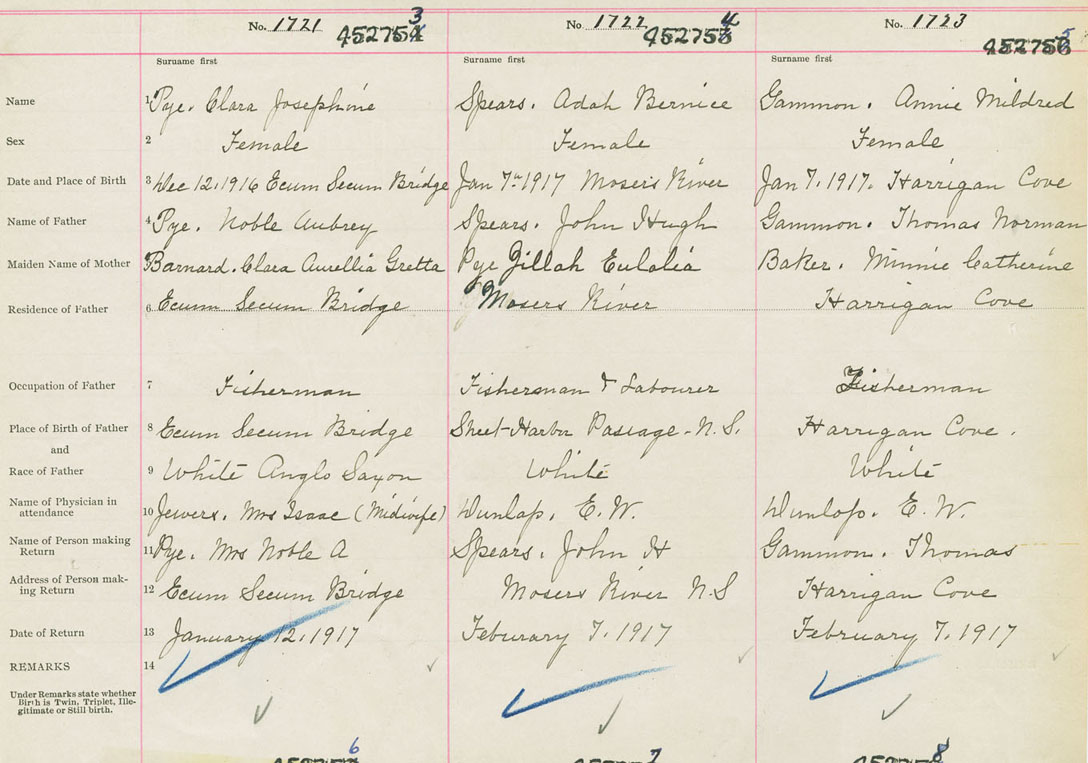 No. 1721 No. 1722 No. 1723
Surname first Surname first Surname first
Name 1 Pye. Clara Josephine Spears. Adah Bernice Gammon. Annie Mildred
Sex 2 Female Female Female
Date and Place of Birth 3 Dec 12, 1916 Ecum Secum Bridge Jan 7th 1917 Mosers River Jan 7, 1917. Harrigan Cove
Name of Father 4 Pye. Noble Aubrey Spears. John Hugh Gammon. Thomas Norman
Maiden Name of Mother 5 Barnard. Clara Aurellia Gretta Pye Zillah Eulalia Baker. Minnie Catherine
Residence of Father 6 Ecum Secum Bridge Mosers River Harrigan Cove
Occupation of Father 7 Fisherman Fisherman & Labourer Fisherman
Place of Birth of Father 8 Ecum Secum Bridge Sheet Harbor Passage - N.S. Harrigan Cove.
and
Race of Father 9 White Anglo Saxon White White
Name of Physician in
attendance 10 Jewers. Mrs Isaac (Midwife) Dunlap. E. W. Dunlop. E. W.
Name of Person making
Return 11 Pye. Mrs Noble A Spears. John H Gammon. Thomas
Address of Person mak-
ing Return 12 Ecum Secum Bridge Mosers River N.S Harrigan Cove
Date of Return 13 January 12, 1917 Feburary 7, 1917 February 7, 1917
REMARKS 14
Under Remarks state whether
Birth is Twin, Triplet, Ille-
gitimate or Still birth.
6 7 8